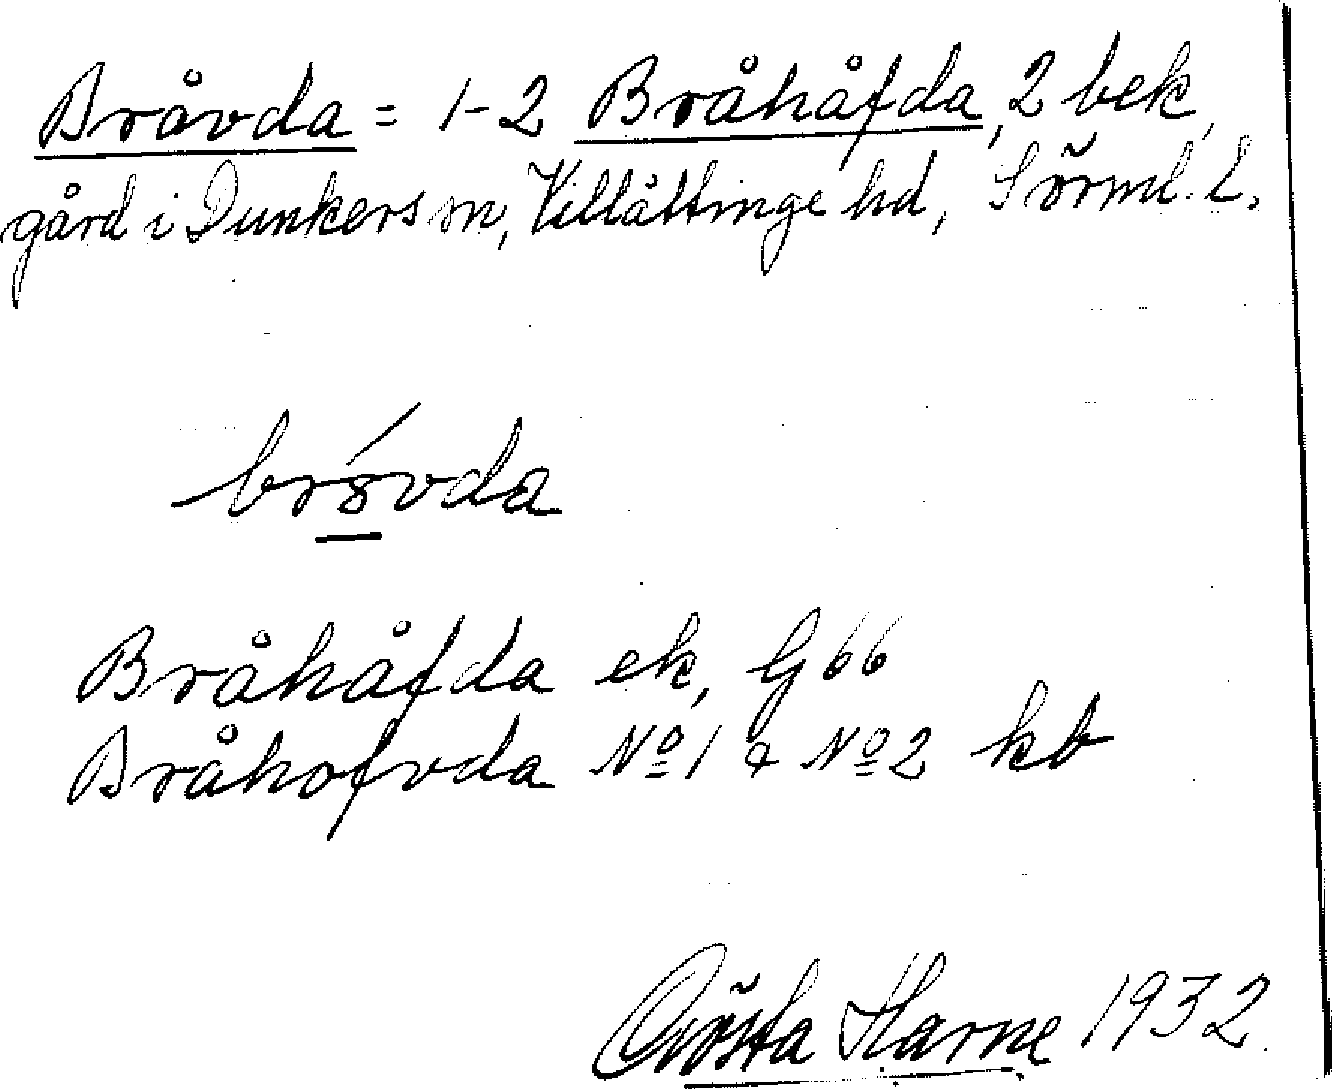 Bråvda = 1-2 Bråhåfda, 2 bek,
gård i Dunkers sn, Villåttinge hd, Sörml. l.
brǻvda
Bråhåfda ek, G 66
Bråhofvda No 1 & No 2 kb
Gösta Harne 1932